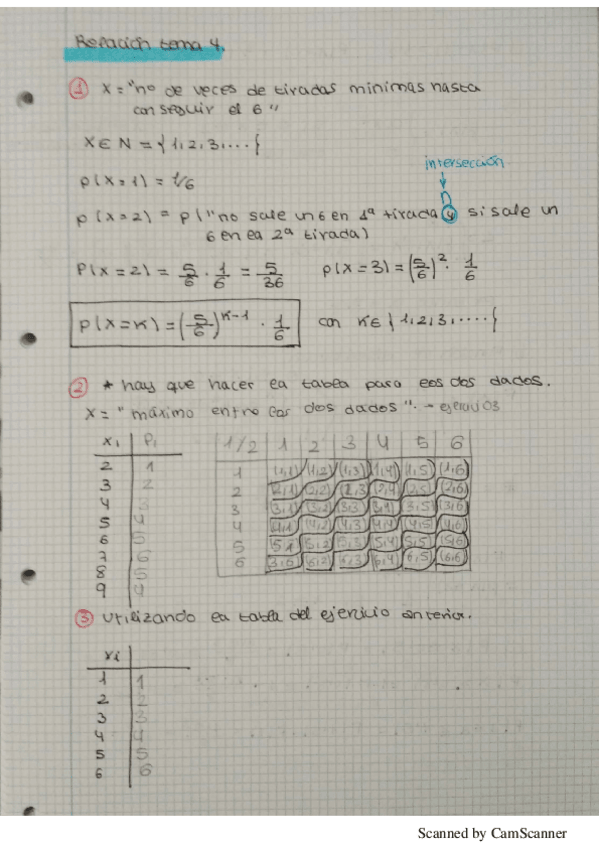 Relación tema 4.
① X = "no de veces de tiradas mínimas hasta
conseguir el 6"
X ∈ N = {1,2,3,....}
intersección
p(X=1) = 1/6
∩
p(X=2) = p("no sale un 6 en 1ª tirada y si sale un
6 en la 2ª tirada)
P(X=2) = 5/6 · 1/6 = 5/36 p(X=3) = (5/6)² · 1/6
p(X=K) = (5/6)^K-1 · 1/6 con K ∈ {1,2,3,....}
② * hay que hacer la tabla para los dos dados.
X = "máximo entre los dos dados". → ejercicio 3
xi Pi
2 1
3 2
4 3
5 4
6 5
7 6
8 5
9 4
1/2 1 2 3 4 5 6
1 (1,1) (1,2) (1,3) (1,4) (1,5) (1,6)
2 (2,1) (2,2) (2,3) (2,4) (2,5) (2,6)
3 (3,1) (3,2) (3,3) (3,4) (3,5) (3,6)
4 (4,1) (4,2) (4,3) (4,4) (4,5) (4,6)
5 (5,1) (5,2) (5,3) (5,4) (5,5) (5,6)
6 (6,2) (6,3) (6,4) (6,5) (6,6)
③ utilizando la tabla del ejercicio anterior.
xi
1 1
2 2
3 3
4 4
5 5
6 6
Scanned by CamScanner